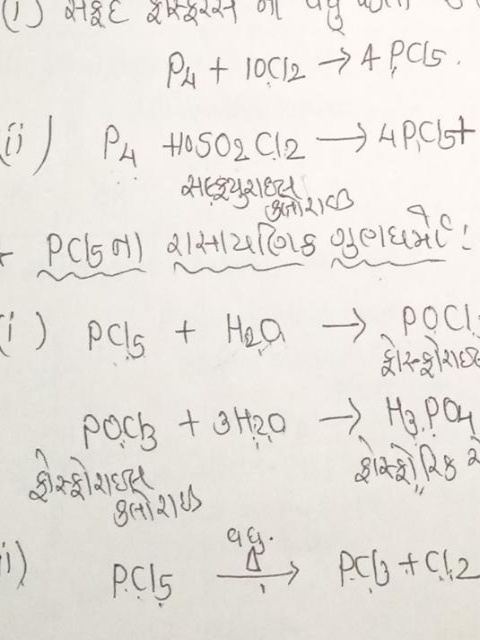 (i) સફેદ ફોસ્ફરસ ના વધુ
P4 + 10Cl2 → 4 PCl5.
(ii) P4 + 10SO2Cl2 → 4PCl5 +
સલ્ફ્યુરાઇલ
ક્લોરાઇડ
* PCl5 ના રાસાયણિક ગુણધર્મો :
(i) PCl5 + H2O → POCl3
ફોસ્ફોરાઇલ
POCl3 + 3H2O → H3PO4
ફોસ્ફોરાઇલ ફોસ્ફોરિક
ક્લોરાઇડ
ii) PCl5 વધુ. Δ → PCl3 + Cl2